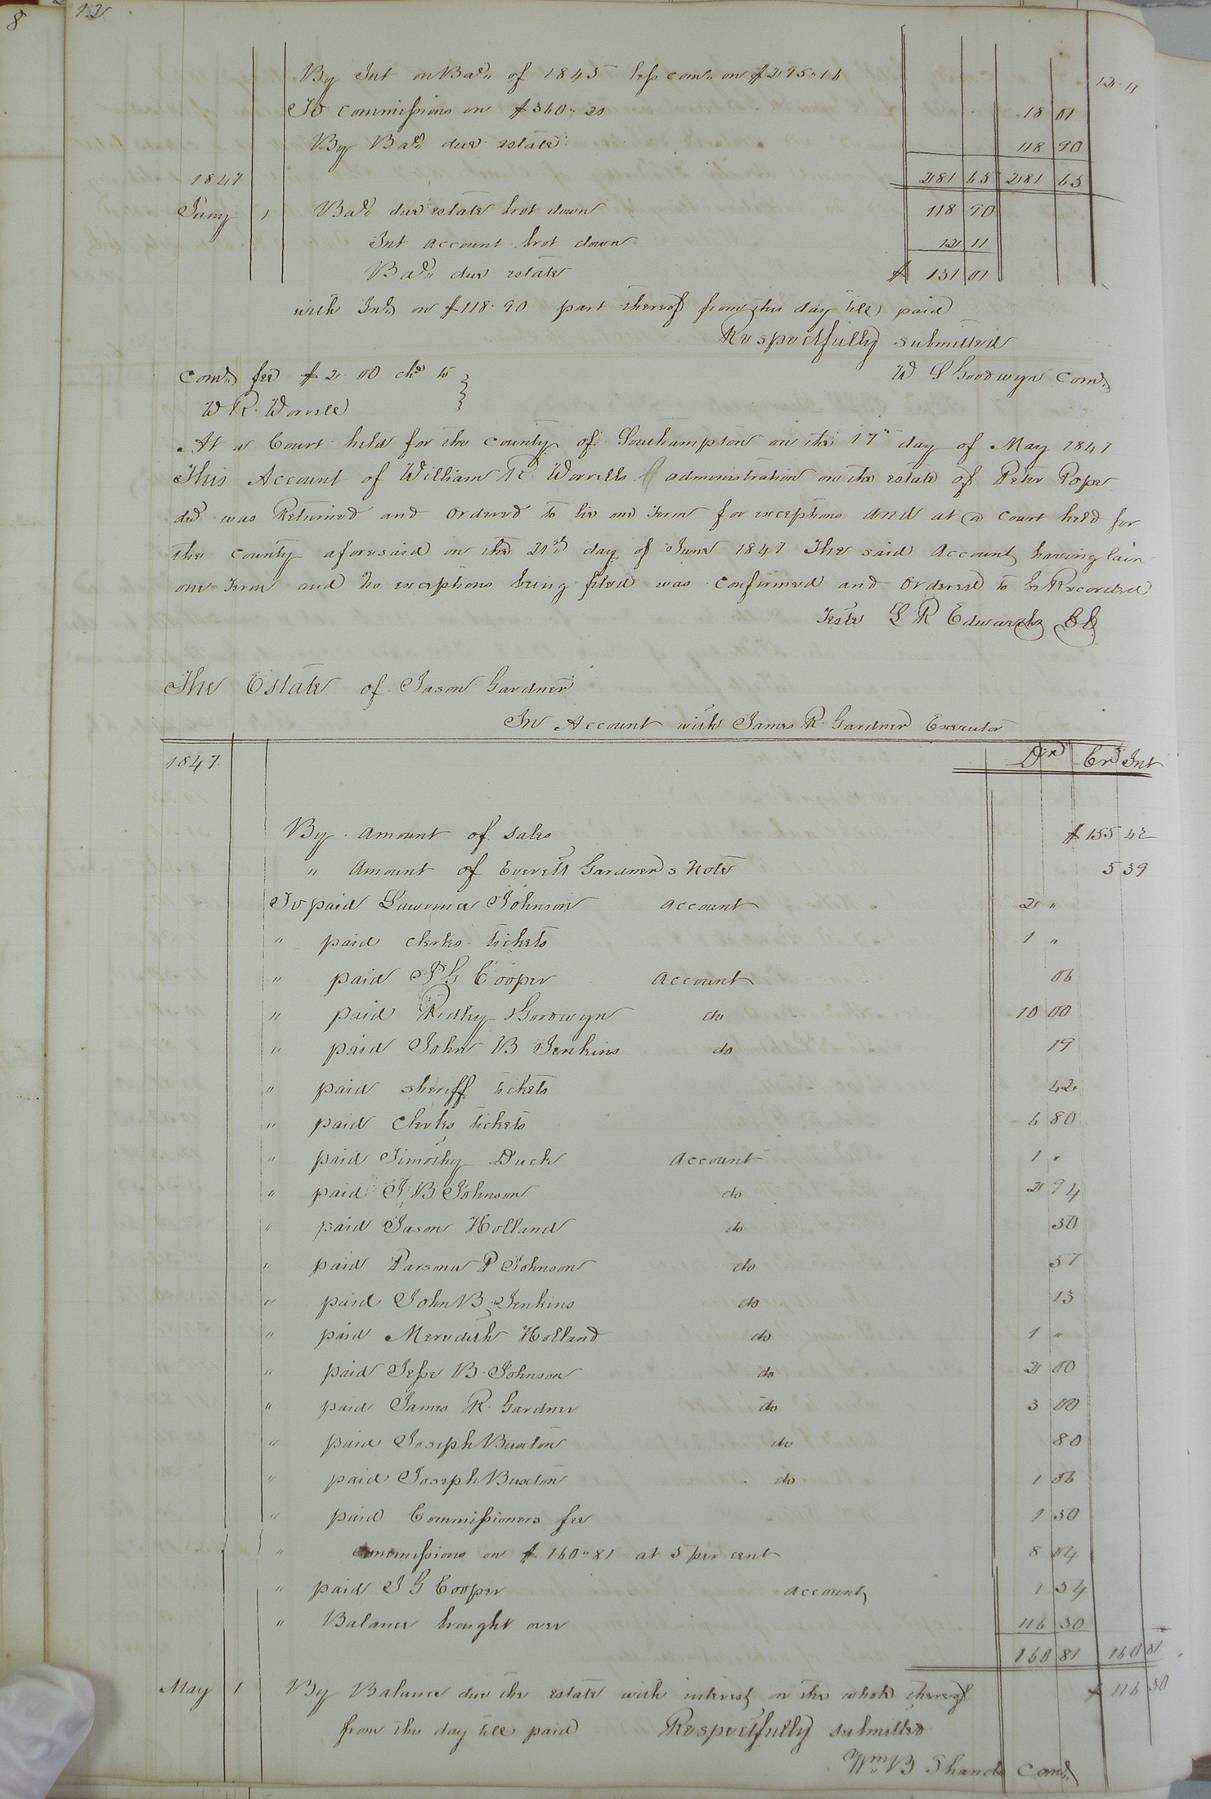 8
12
By Int on Balᵉ of 1845 less comˢ on $295.16 12 11
To commissions on $360.20 18 01
By Balᵉ due estate 118 90
1847 281 65 281 65
Jany 1 Balᵉ due estate brot down 118 90
Int account brot down 12 11
Balᵉ due estate $ 131 01
with Intˢ on $118.90 part thereof from this day till paid
Respectfully submitted
Comˢ fee $2.00 chᵈ to W S Goodwyn Comˢ
W R Worrell
At a Court held for the county of Southampton on the 17ᵗʰ day of May 1847
This Account of William R Worrells administration on the estate of Peter Pope
decd was Returned and ordered to lie one Term for exceptions And at a Court held for
the county aforesaid on the 21ˢᵗ day of June 1847 The said Account having lain
one Term and no exceptions being filed was confirmed and Ordered to be Recorded
Teste L R Edwards CC
The Estate of Jason Gardner
In Account with James R Gardner Executor
1847 Dr Cr Int
By Amount of Sales $ 155 42
" Amount of Everett Gardner s Note 5 39
To paid Lawrence Johnson account 2 "
" paid clerks tickets 1 "
" paid J G Cooper Account 06
" paid Ridley Goodwyn do 10 00
" paid John B Jenkins do 19
" paid sheriff tickets 42
" paid Clerks tickets 6 80
" paid Timothy Duck Account 1 "
" paid J B Johnson do 2 94
" paid Jason Holland do 50
" paid Parsona P Johnson do 57
" paid John B Jenkins do 13
" paid Meredith Holland do 1 "
" paid Jesse B Johnson do 2 00
" paid James R Gardner do 3 00
" paid Joseph Buxton do 80
" paid Joseph Buxton do 1 06
" paid Commissioners fee 1 50
" commissions on $160.81 at 5 per cent 8 04
" paid J G Cooper account 1 54
" Balance brought over 116 30
160 81 160 81
May 1 By Balance due the estate with interest on the whole thereof $ 116 30
from this day till paid Respectfully submitted
Wm B Shands Comˢ